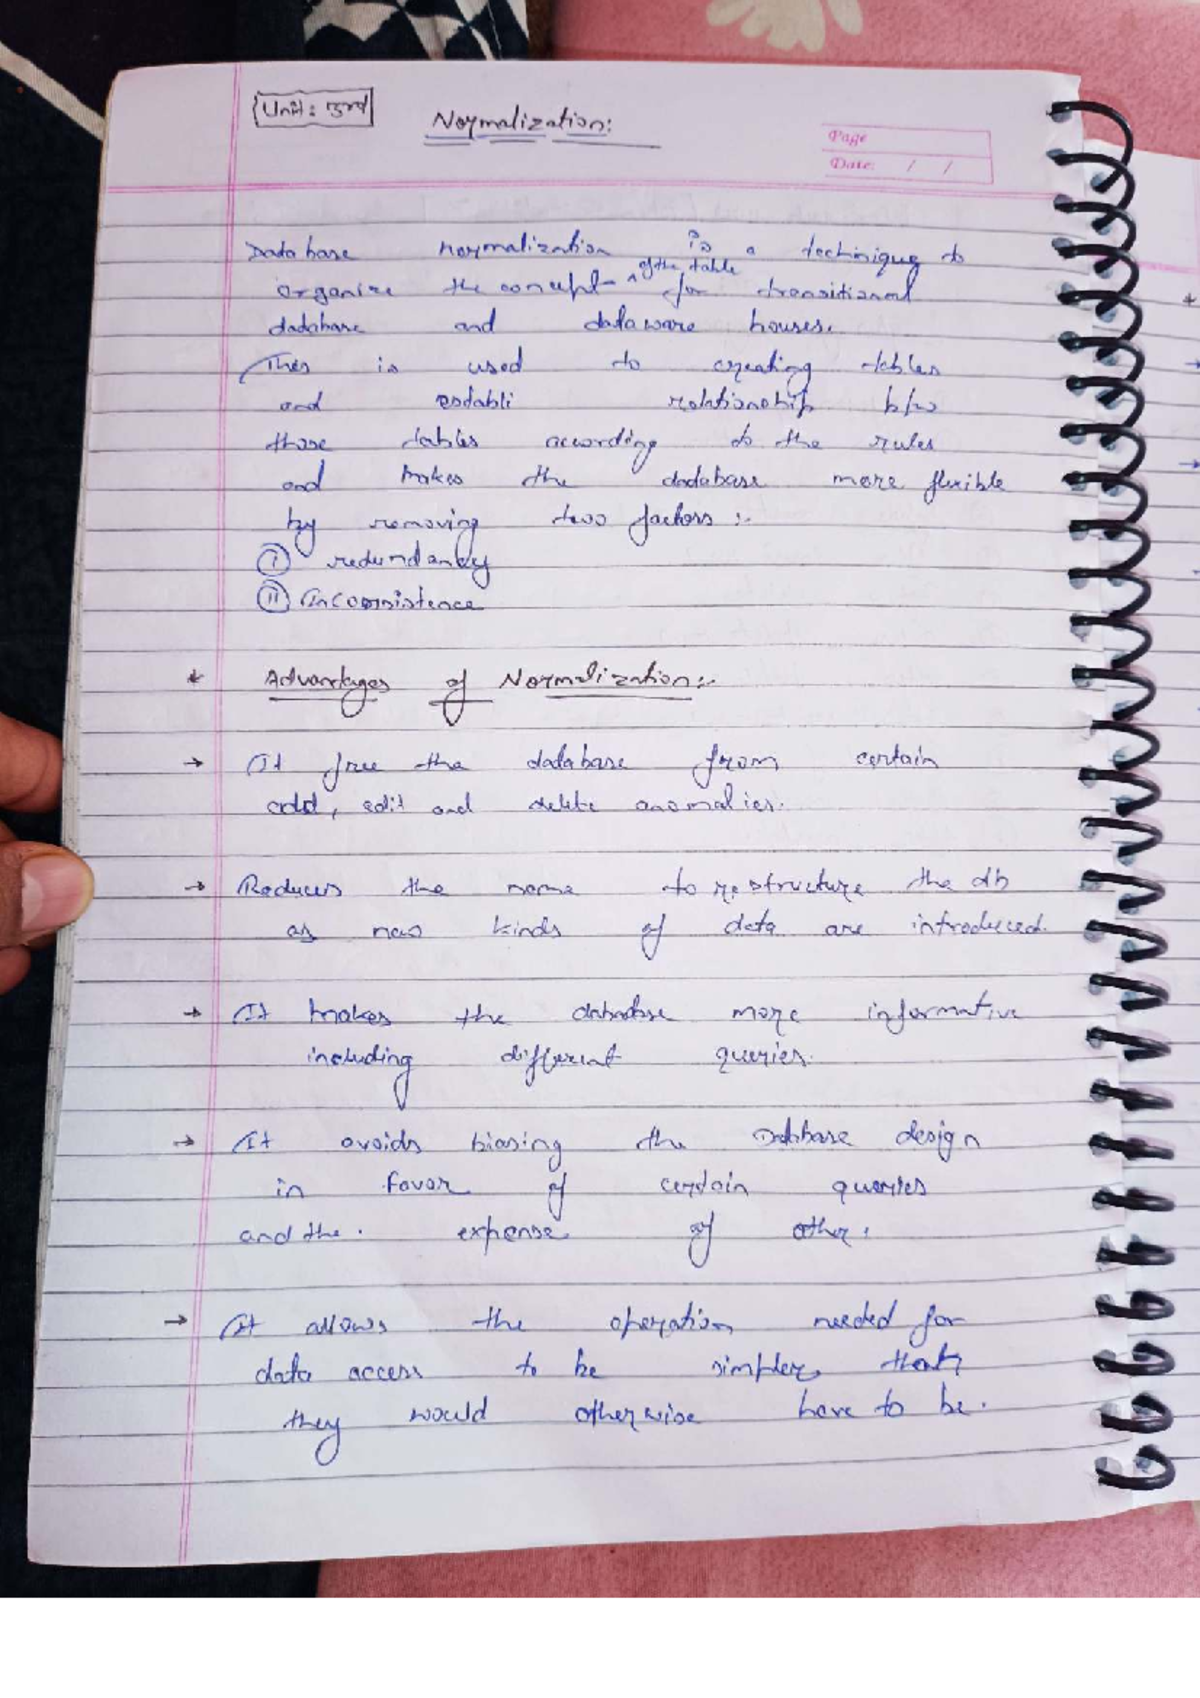 Unit: 3rd
Normalization:
Page
Date: / /
Database normalization is a technique to
organize the concept of the table for transitional
database and dataware houses.
This is used to creating tables
and establi relationship b/w
those tables according to the rules
and makes the database more flexible
by removing two factors :-
(I) redundancy
(II) inconsistence
* Advantages of Normalization:-
→ It free the database from certain
add, edit and delete anomalies.
→ Reduces the name to restructure the db
as new kinds of data are introduced.
→ It makes the database more informative
including different queries.
→ It avoids biasing the Database design
in favor of certain queries
and the. expense of other.
→ It allows the operation needed for
data access to be simpler that
they would otherwise have to be.